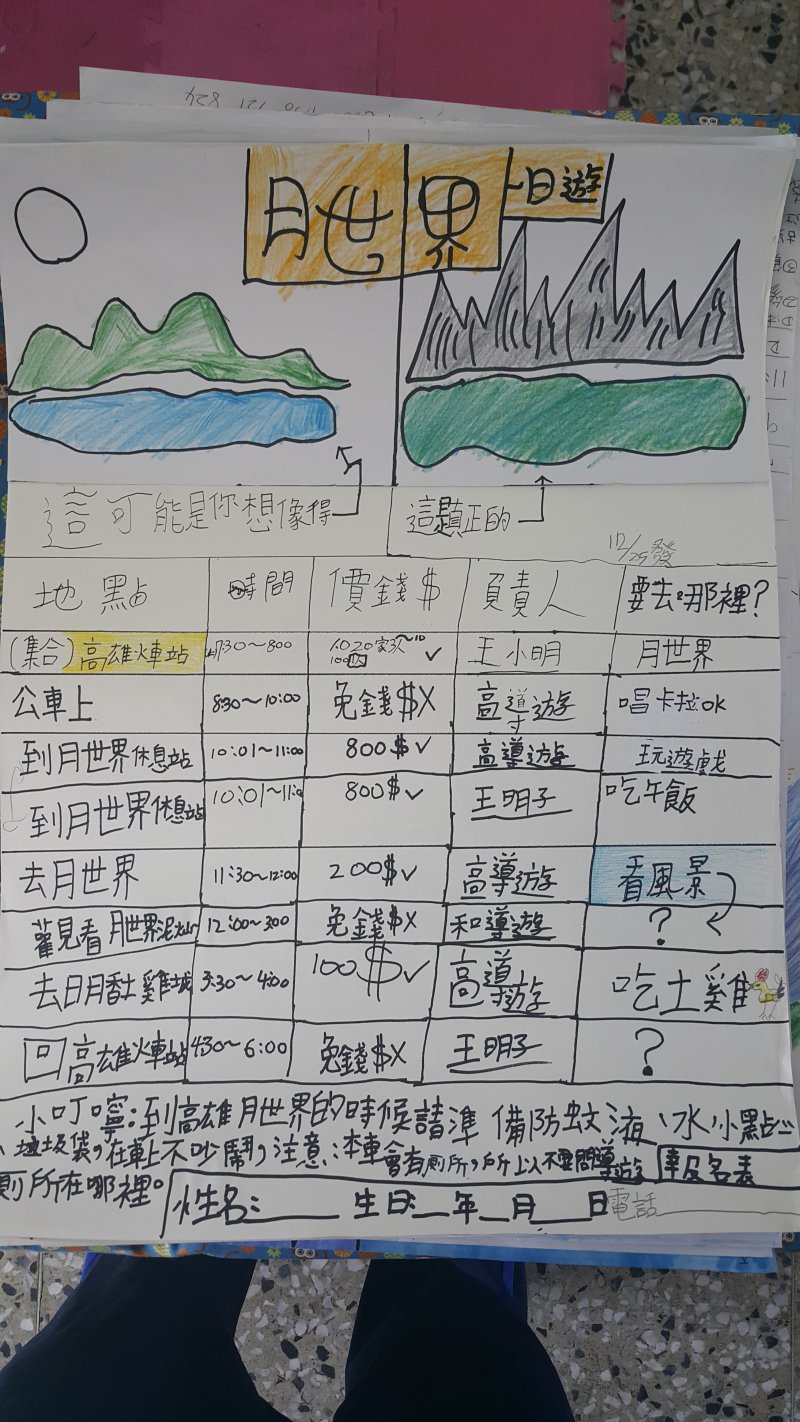 月世界
一日遊
這可能是你想像得
這是真正的
12/25發
地點 時間 價錢$ 負責人 要去哪裡?
(集合)高雄火車站 7:30~8:00 王小明 月世界
公車上 8:30~10:00 免錢$X 高導遊 唱卡拉OK
到月世界休息站 10:01~11:00 800$✓ 高導遊 玩遊戲
到月世界休息站 10:01~11:0 800$✓ 王明子 吃午飯
去月世界 11:30~12:00 200$✓ 高導遊 看風景
月世界泥 12:00~300 免錢$X 和導遊 ?
去日月香土雞城 3:30~4:00 100$✓ 高導遊 吃土雞
回高雄火車站 430~6:00 免錢$X 王明子 ?
小叮嚀:到高雄月世界的時候請準備防蚊液、水、小點心
、垃圾袋,在車上不吵鬧,注意:本車會有廁所,所以不要問導遊
廁所在哪裡。
報名表
性名:____ 生日:__年__月__日電話____